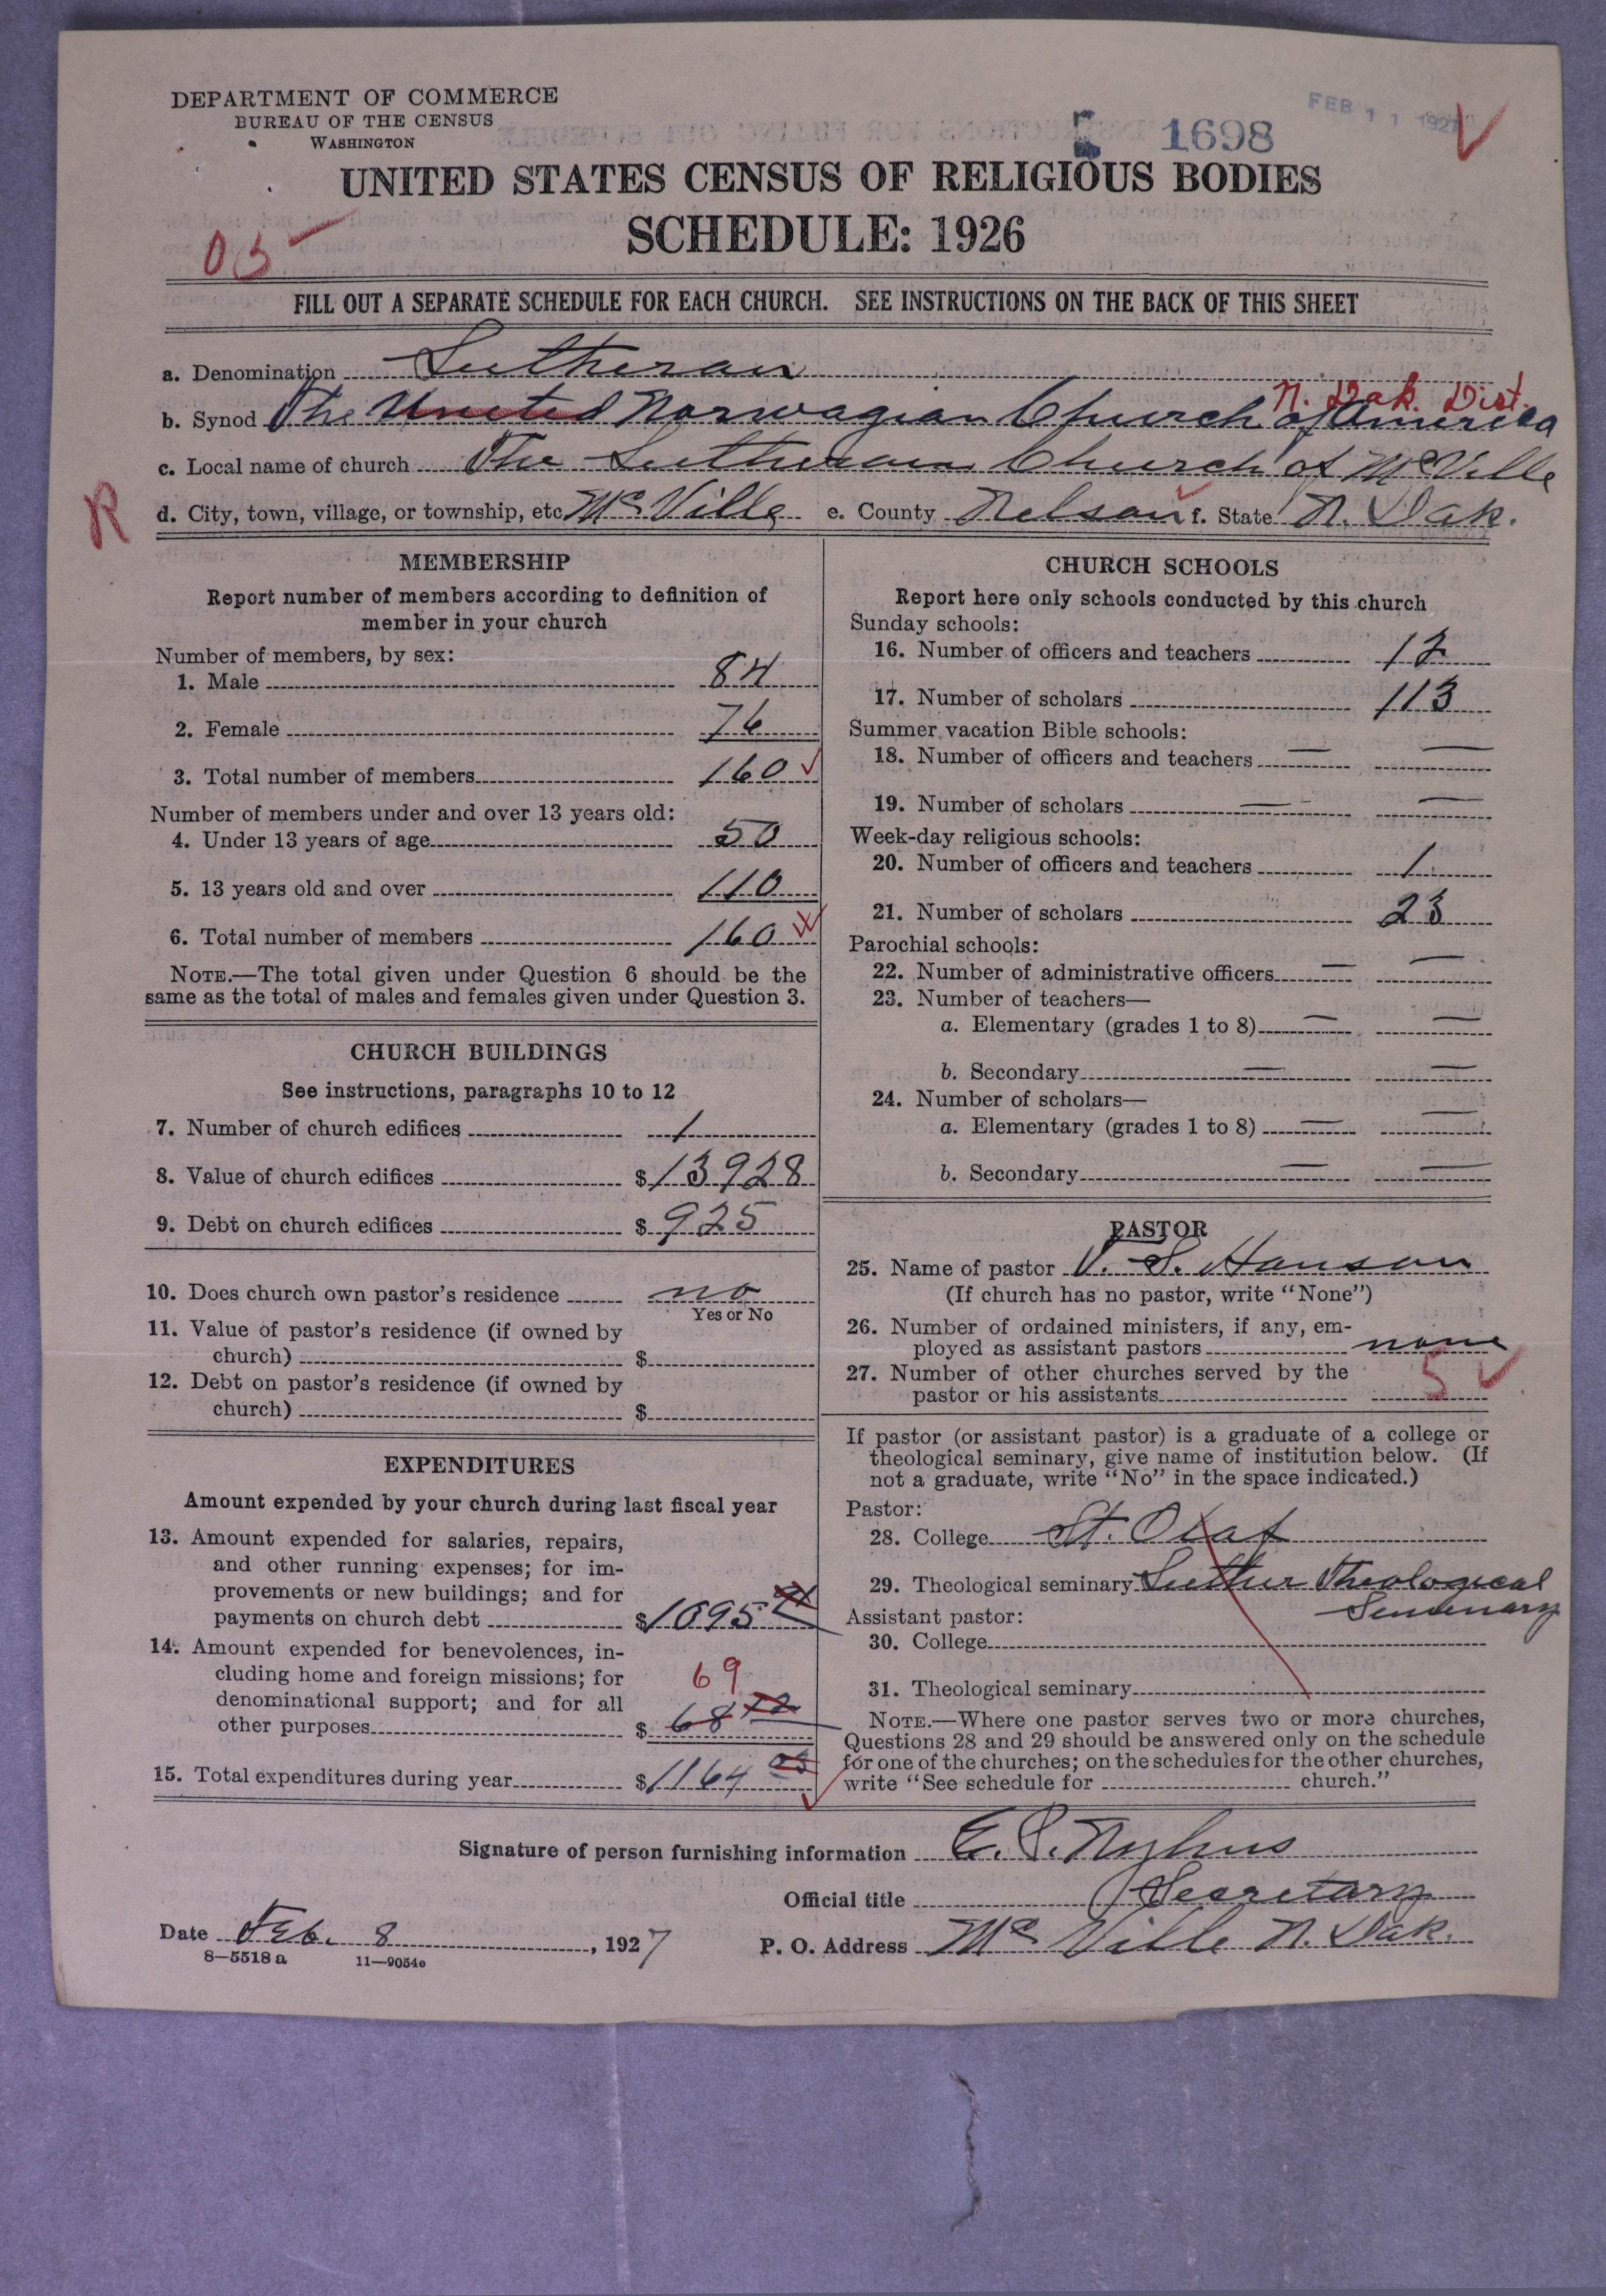 DEPARTMENT OF COMMERCE
BUREAU OF THE CENSUS
WASHINGTON
1698
FEB 11 1927
UNITED STATES CENSUS OF RELIGIOUS BODIES
SCHEDULE: 1926
FILL OUT A SEPARATE SCHEDULE FOR EACH CHURCH. SEE INSTRUCTIONS ON THE BACK OF THIS SHEET
a. Denomination Lutheran
N. Dak. Dist.
b. Synod The United Norwagian Church of America
c. Local name of church The Lutheran Church of McVille
R
d. City, town, village, or township, etc McVille e. County Nelson f. State N. Dak.
MEMBERSHIP
Report number of members according to definition of
member in your church
Number of members, by sex:
1. Male 84
2. Female 76
3. Total number of members 160
Number of members under and over 13 years old:
4. Under 13 years of age 50
5. 13 years old and over 110
6. Total number of members 160
NOTE.—The total given under Question 6 should be the
same as the total of males and females given under Question 3.
CHURCH BUILDINGS
See instructions, paragraphs 10 to 12
7. Number of church edifices 1
8. Value of church edifices $13928
9. Debt on church edifices $925
10. Does church own pastor's residence no
Yes or No
11. Value of pastor's residence (if owned by
church) $
12. Debt on pastor's residence (if owned by
church) $
EXPENDITURES
Amount expended by your church during last fiscal year
13. Amount expended for salaries, repairs,
and other running expenses; for im-
provements or new buildings; and for
payments on church debt $1095
14. Amount expended for benevolences, in-
cluding home and foreign missions; for 69
denominational support; and for all
other purposes $68
15. Total expenditures during year $1164
CHURCH SCHOOLS
Report here only schools conducted by this church
Sunday schools:
16. Number of officers and teachers 12
17. Number of scholars 113
Summer vacation Bible schools:
18. Number of officers and teachers — —
19. Number of scholars — —
Week-day religious schools:
20. Number of officers and teachers 1
21. Number of scholars 23
Parochial schools:
22. Number of administrative officers — —
23. Number of teachers—
a. Elementary (grades 1 to 8) — —
b. Secondary — —
24. Number of scholars—
a. Elementary (grades 1 to 8) — —
b. Secondary — —
PASTOR
25. Name of pastor V. S. Hanson
(If church has no pastor, write "None")
26. Number of ordained ministers, if any, em-
ployed as assistant pastors none
27. Number of other churches served by the
pastor or his assistants 5
If pastor (or assistant pastor) is a graduate of a college or
theological seminary, give name of institution below. (If
not a graduate, write "No" in the space indicated.)
Pastor:
28. College St. Olaf
29. Theological seminary Luther Theological
Seminary
Assistant pastor:
30. College
31. Theological seminary
NOTE.—Where one pastor serves two or more churches,
Questions 28 and 29 should be answered only on the schedule
for one of the churches; on the schedules for the other churches,
write "See schedule for church."
Signature of person furnishing information E. S. Nyhus
Official title Secretary
Date Feb. 8, 1927 P. O. Address McVille N. Dak.
8—5518a 11—9054e